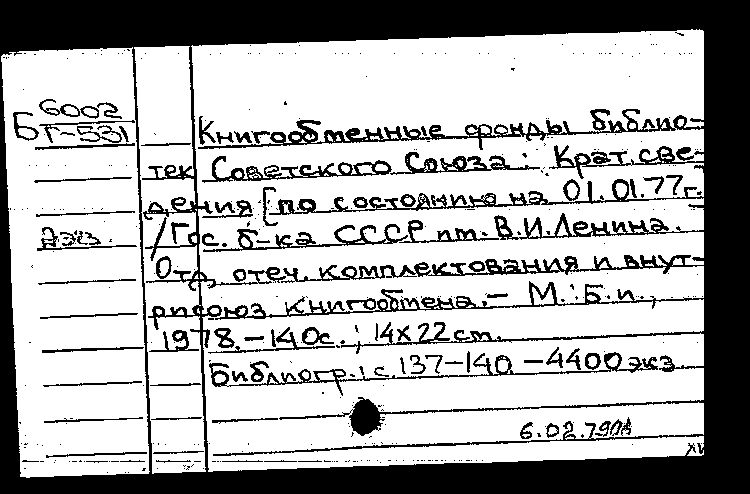 6002
Б Г-531
Книгообменные фонды библио-
тек Советского Союза: Крат. све-
дения [по состоянию на 01.01.77г.]
/Гос. б-ка СССР им. В.И.Ленина.
2экз.
Отд. отеч. комплектования и внут-
рисоюз. книгообмена. - М.: Б.и.,
1978. - 140с.; 14х22см.
Библиогр.: с.137-140. - 4400экз
6.02.79
XV